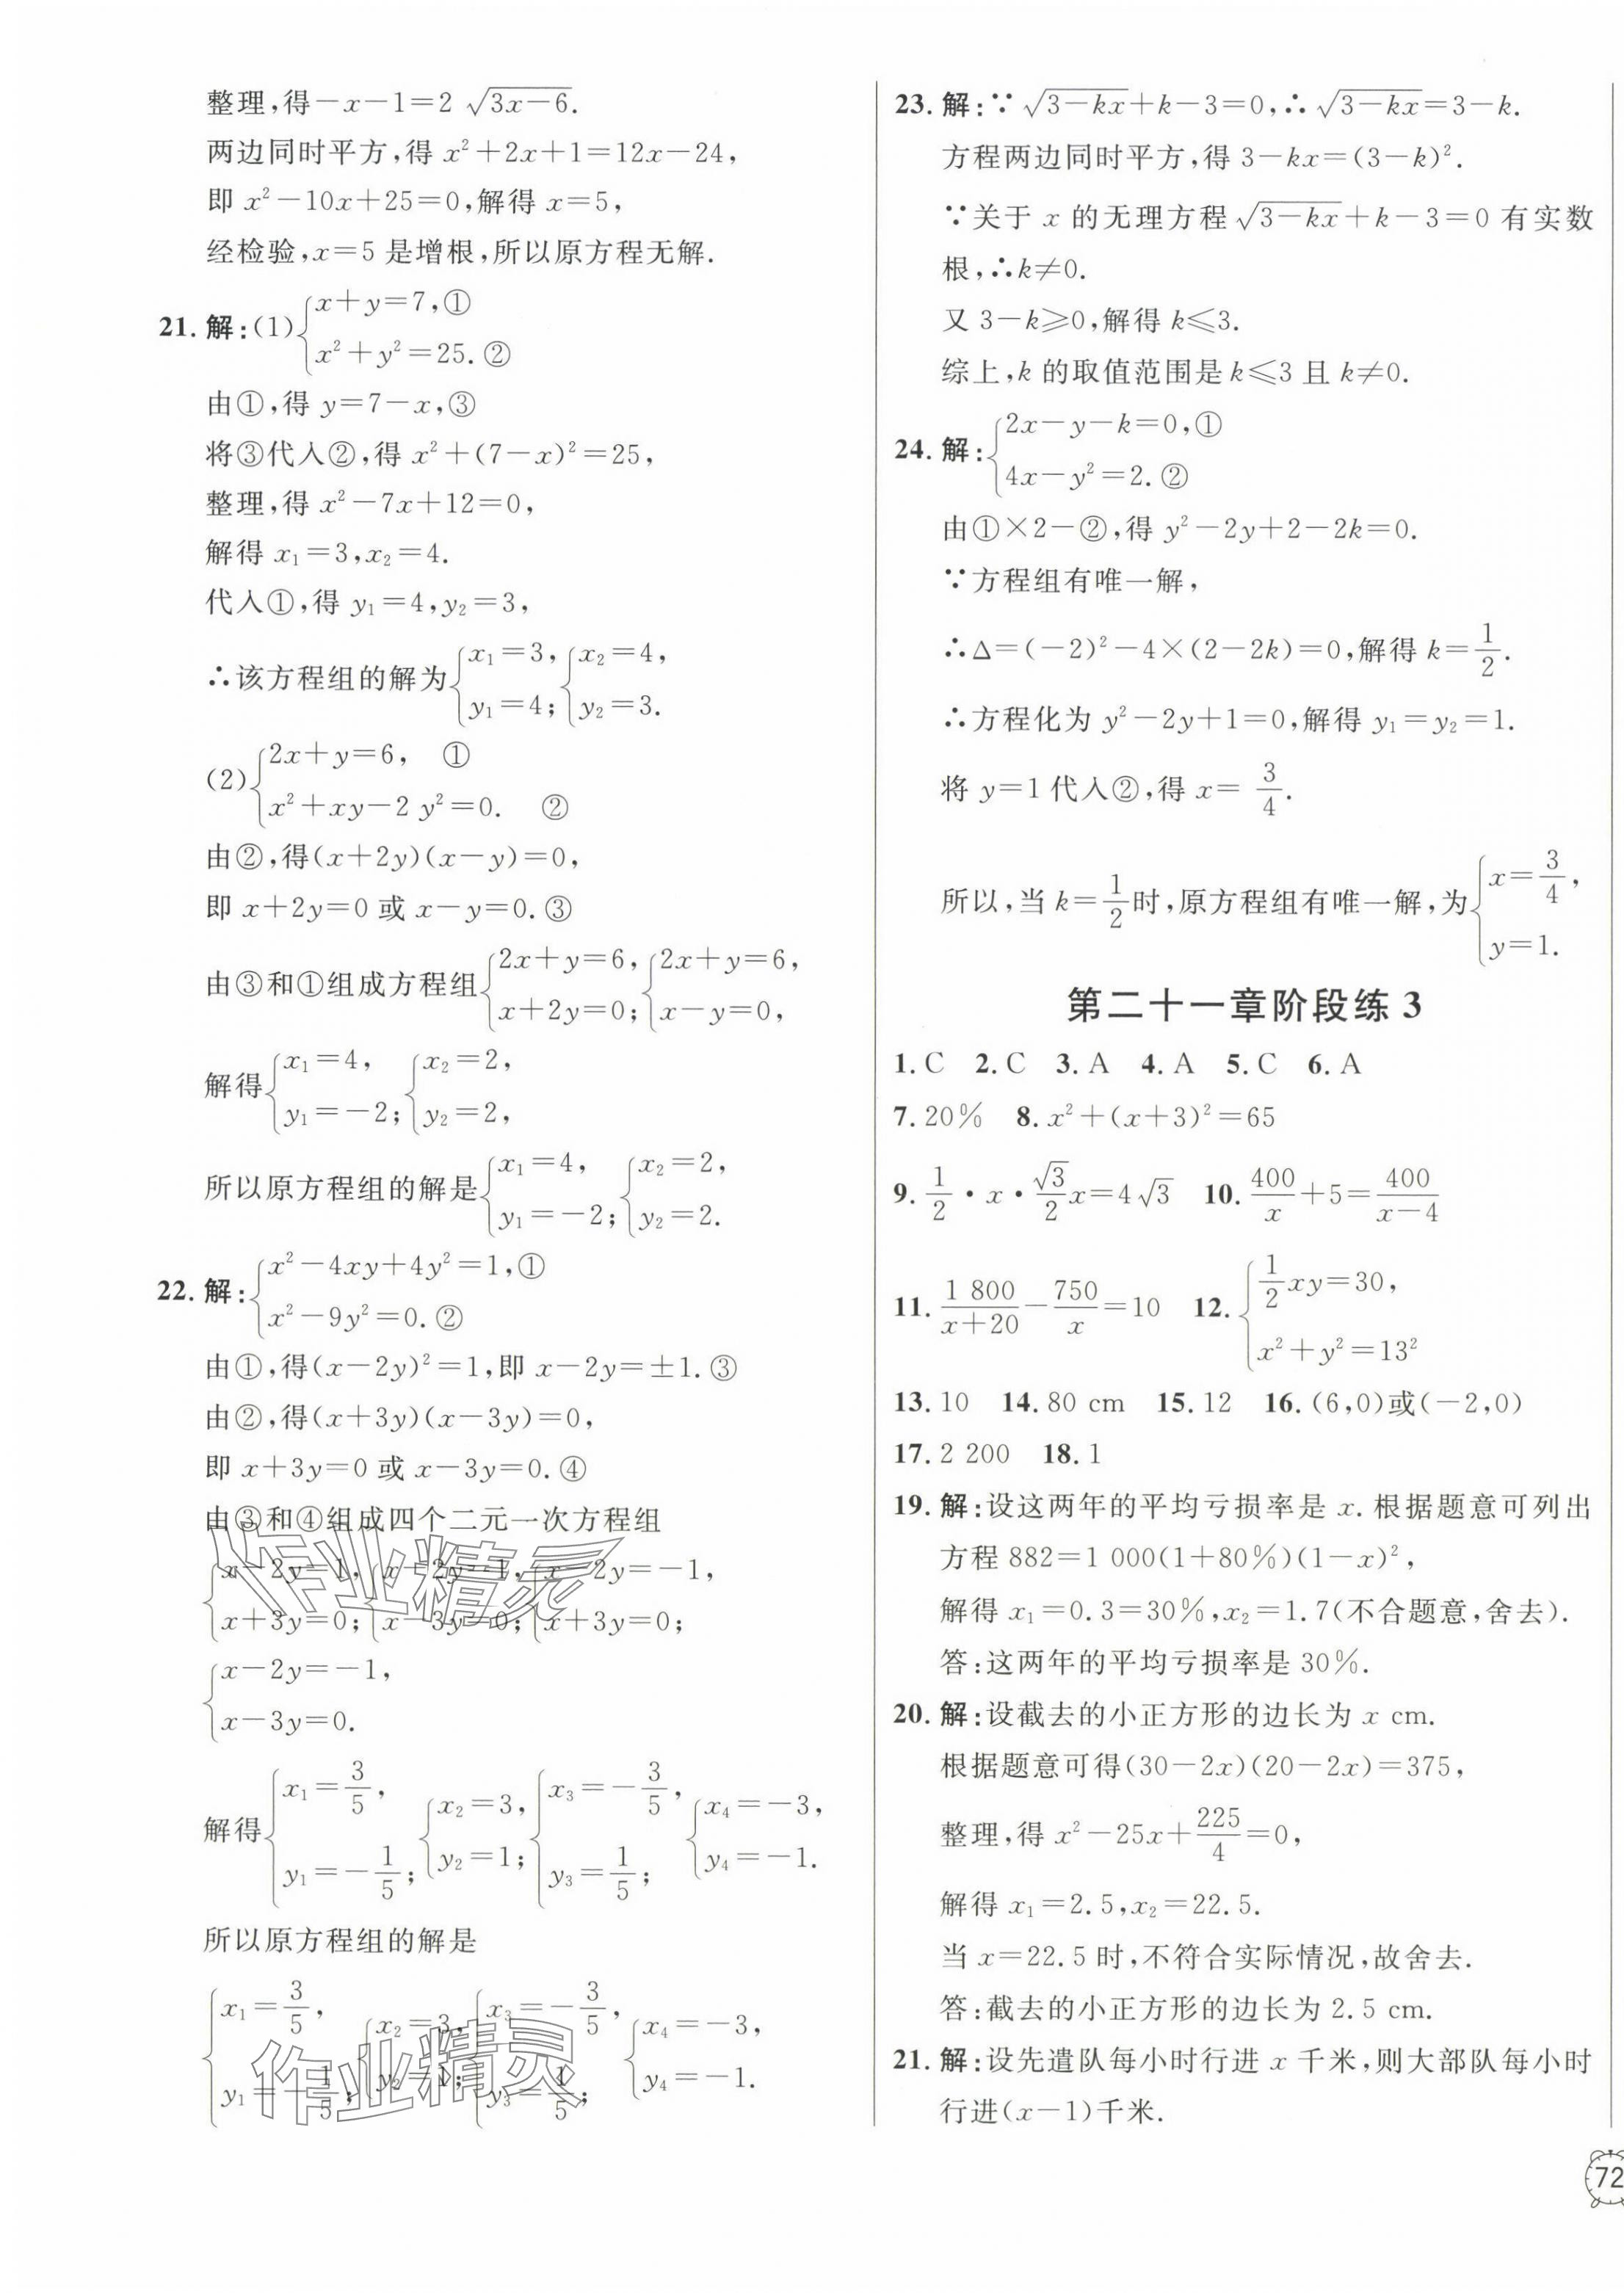 整理,得－x－1＝2 √(3x－6).
两边同时平方,得 x²＋2x＋1＝12x－24,
即 x²－10x＋25＝0,解得 x＝5,
经检验,x＝5 是增根,所以原方程无解.
21. 解:(1){x＋y＝7,① x²＋y²＝25. ②
由①,得 y＝7－x,③
将③代入②,得 x²＋(7－x)²＝25,
整理,得 x²－7x＋12＝0,
解得 x₁＝3,x₂＝4.
代入①,得 y₁＝4,y₂＝3,
∴该方程组的解为{x₁＝3, y₁＝4; {x₂＝4, y₂＝3.
(2){2x＋y＝6, ① x²＋xy－2 y²＝0. ②
由②,得(x＋2y)(x－y)＝0,
即 x＋2y＝0 或 x－y＝0. ③
由③和①组成方程组{2x＋y＝6, x＋2y＝0; {2x＋y＝6, x－y＝0,
解得{x₁＝4, y₁＝－2; {x₂＝2, y₂＝2,
所以原方程组的解是{x₁＝4, y₁＝－2; {x₂＝2, y₂＝2.
22. 解:{x²－4xy＋4y²＝1,① x²－9y²＝0. ②
由①,得(x－2y)²＝1,即 x－2y＝±1. ③
由②,得(x＋3y)(x－3y)＝0,
即 x＋3y＝0 或 x－3y＝0. ④
由③和④组成四个二元一次方程组
{x－2y＝1, x＋3y＝0; {x－2y＝1, x－3y＝0; {x－2y＝－1, x＋3y＝0;
{x－2y＝－1, x－3y＝0.
解得{x₁＝3/5, y₁＝－1/5; {x₂＝3, y₂＝1; {x₃＝－3/5, y₃＝1/5; {x₄＝－3, y₄＝－1.
所以原方程组的解是
{x₁＝3/5, y₁＝－1/5; {x₂＝3, y₂＝1; {x₃＝－3/5, y₃＝1/5; {x₄＝－3, y₄＝－1.
作业精灵
作业精灵
23. 解:∵√(3－kx)＋k－3＝0,∴√(3－kx)＝3－k.
方程两边同时平方,得 3－kx＝(3－k)².
∵关于 x 的无理方程√(3－kx)＋k－3＝0 有实数
根,∴k≠0.
又 3－k⩾0,解得 k⩽3.
综上,k 的取值范围是 k⩽3 且 k≠0.
24. 解:{2x－y－k＝0,① 4x－y²＝2. ②
由①×2－②,得 y²－2y＋2－2k＝0.
∵方程组有唯一解,
∴Δ＝(－2)²－4×(2－2k)＝0,解得 k＝1/2.
∴方程化为 y²－2y＋1＝0,解得 y₁＝y₂＝1.
将 y＝1 代入②,得 x＝3/4.
所以,当 k＝1/2时,原方程组有唯一解,为{x＝3/4, y＝1.
第二十一章阶段练 3
1. C 2. C 3. A 4. A 5. C 6. A
7. 20% 8. x²＋(x＋3)²＝65
9. 1/2・x・√3/2 x＝4√3 10. 400/x＋5＝400/(x－4)
11. 1 800/(x＋20)－750/x＝10 12. {1/2 xy＝30, x²＋y²＝13²
13. 10 14. 80 cm 15. 12 16. (6,0)或(－2,0)
17. 2 200 18. 1
19. 解:设这两年的平均亏损率是 x. 根据题意可列出
方程 882＝1 000(1＋80%)(1－x)²,
解得 x₁＝0.3＝30%,x₂＝1.7(不合题意,舍去).
答:这两年的平均亏损率是 30%.
20. 解:设截去的小正方形的边长为 x cm.
根据题意可得(30－2x)(20－2x)＝375,
整理,得 x²－25x＋225/4＝0,
解得 x₁＝2.5,x₂＝22.5.
当 x＝22.5 时,不符合实际情况,故舍去.
答:截去的小正方形的边长为 2.5 cm.
21. 解:设先遣队每小时行进 x 千米,则大部队每小时
行进(x－1)千米.
72